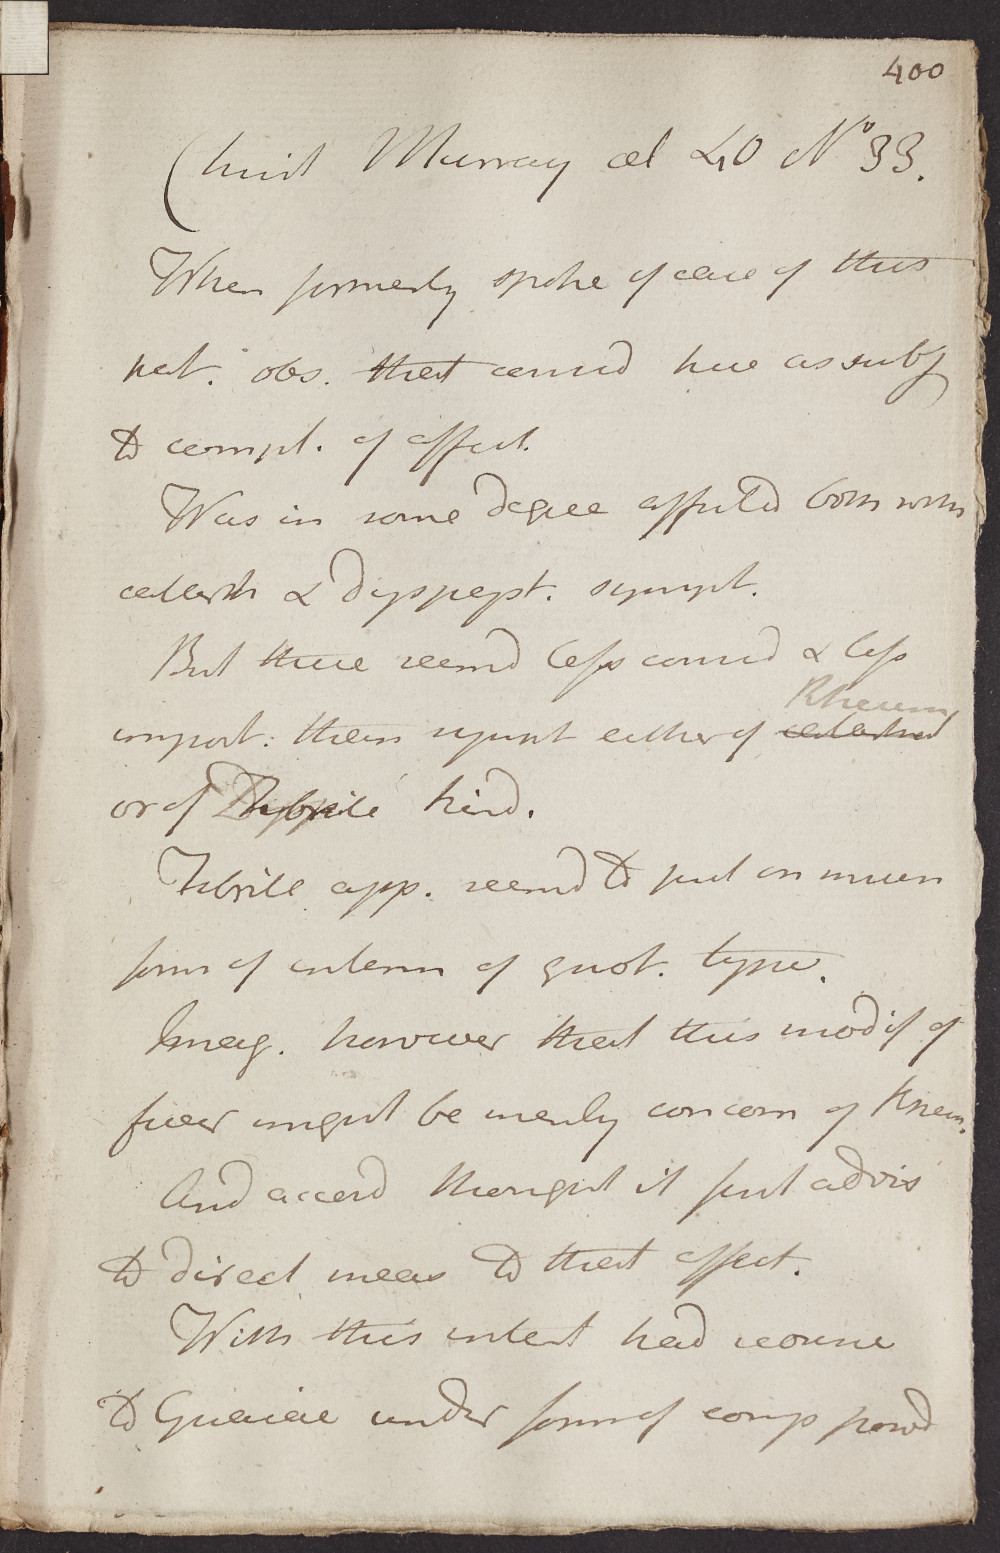 400
Christ Murray æt 40 No 33.
When formerly spoke of case of this
pat. obs. that consid her as subj
to compl. of affect.
Was in some degree affected both with
catarrh & dyspept. sympt.
But these seemd less consid & less
import: than sympt either of Rheum
or of Febrile kind.
Febrile app. seemd to put on much
form of interm of quot. type.
Imag. however that this modif of
fever might be merely concom of Rheum.
And accord thought it first advis
to direct meas to that affect.
With this intent had recourse
to Guaiac under form of comp powd